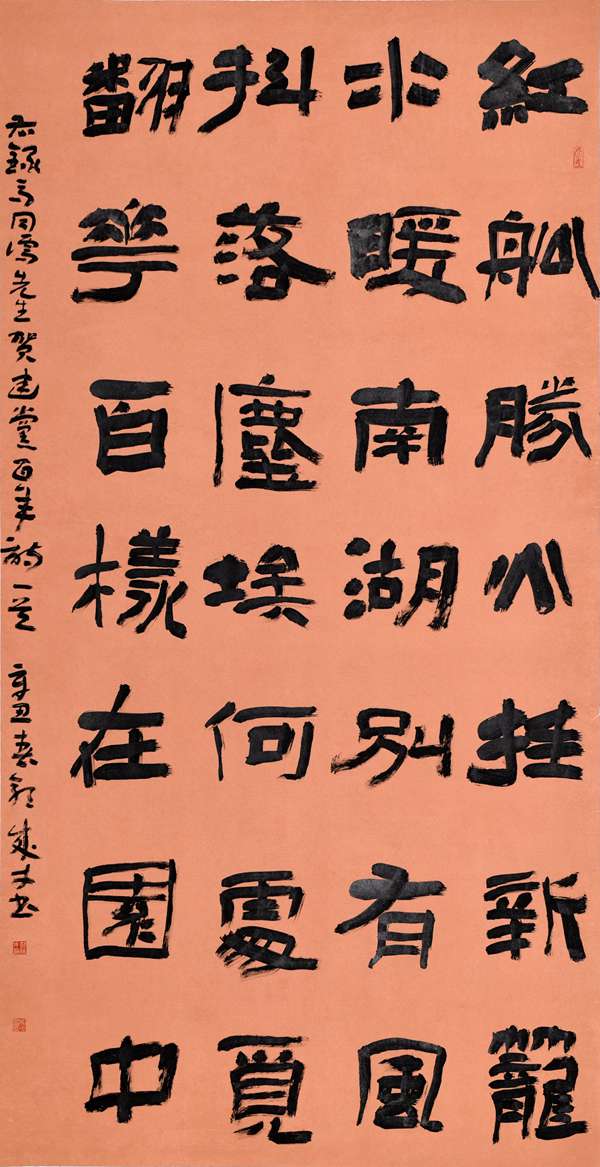 紅船勝火挂新籠
水暖南湖別有風
抖落塵埃何處覓
翻華百樣在園中
右錄馬同儒先生賀建黨百年詩一首 辛丑春 文書